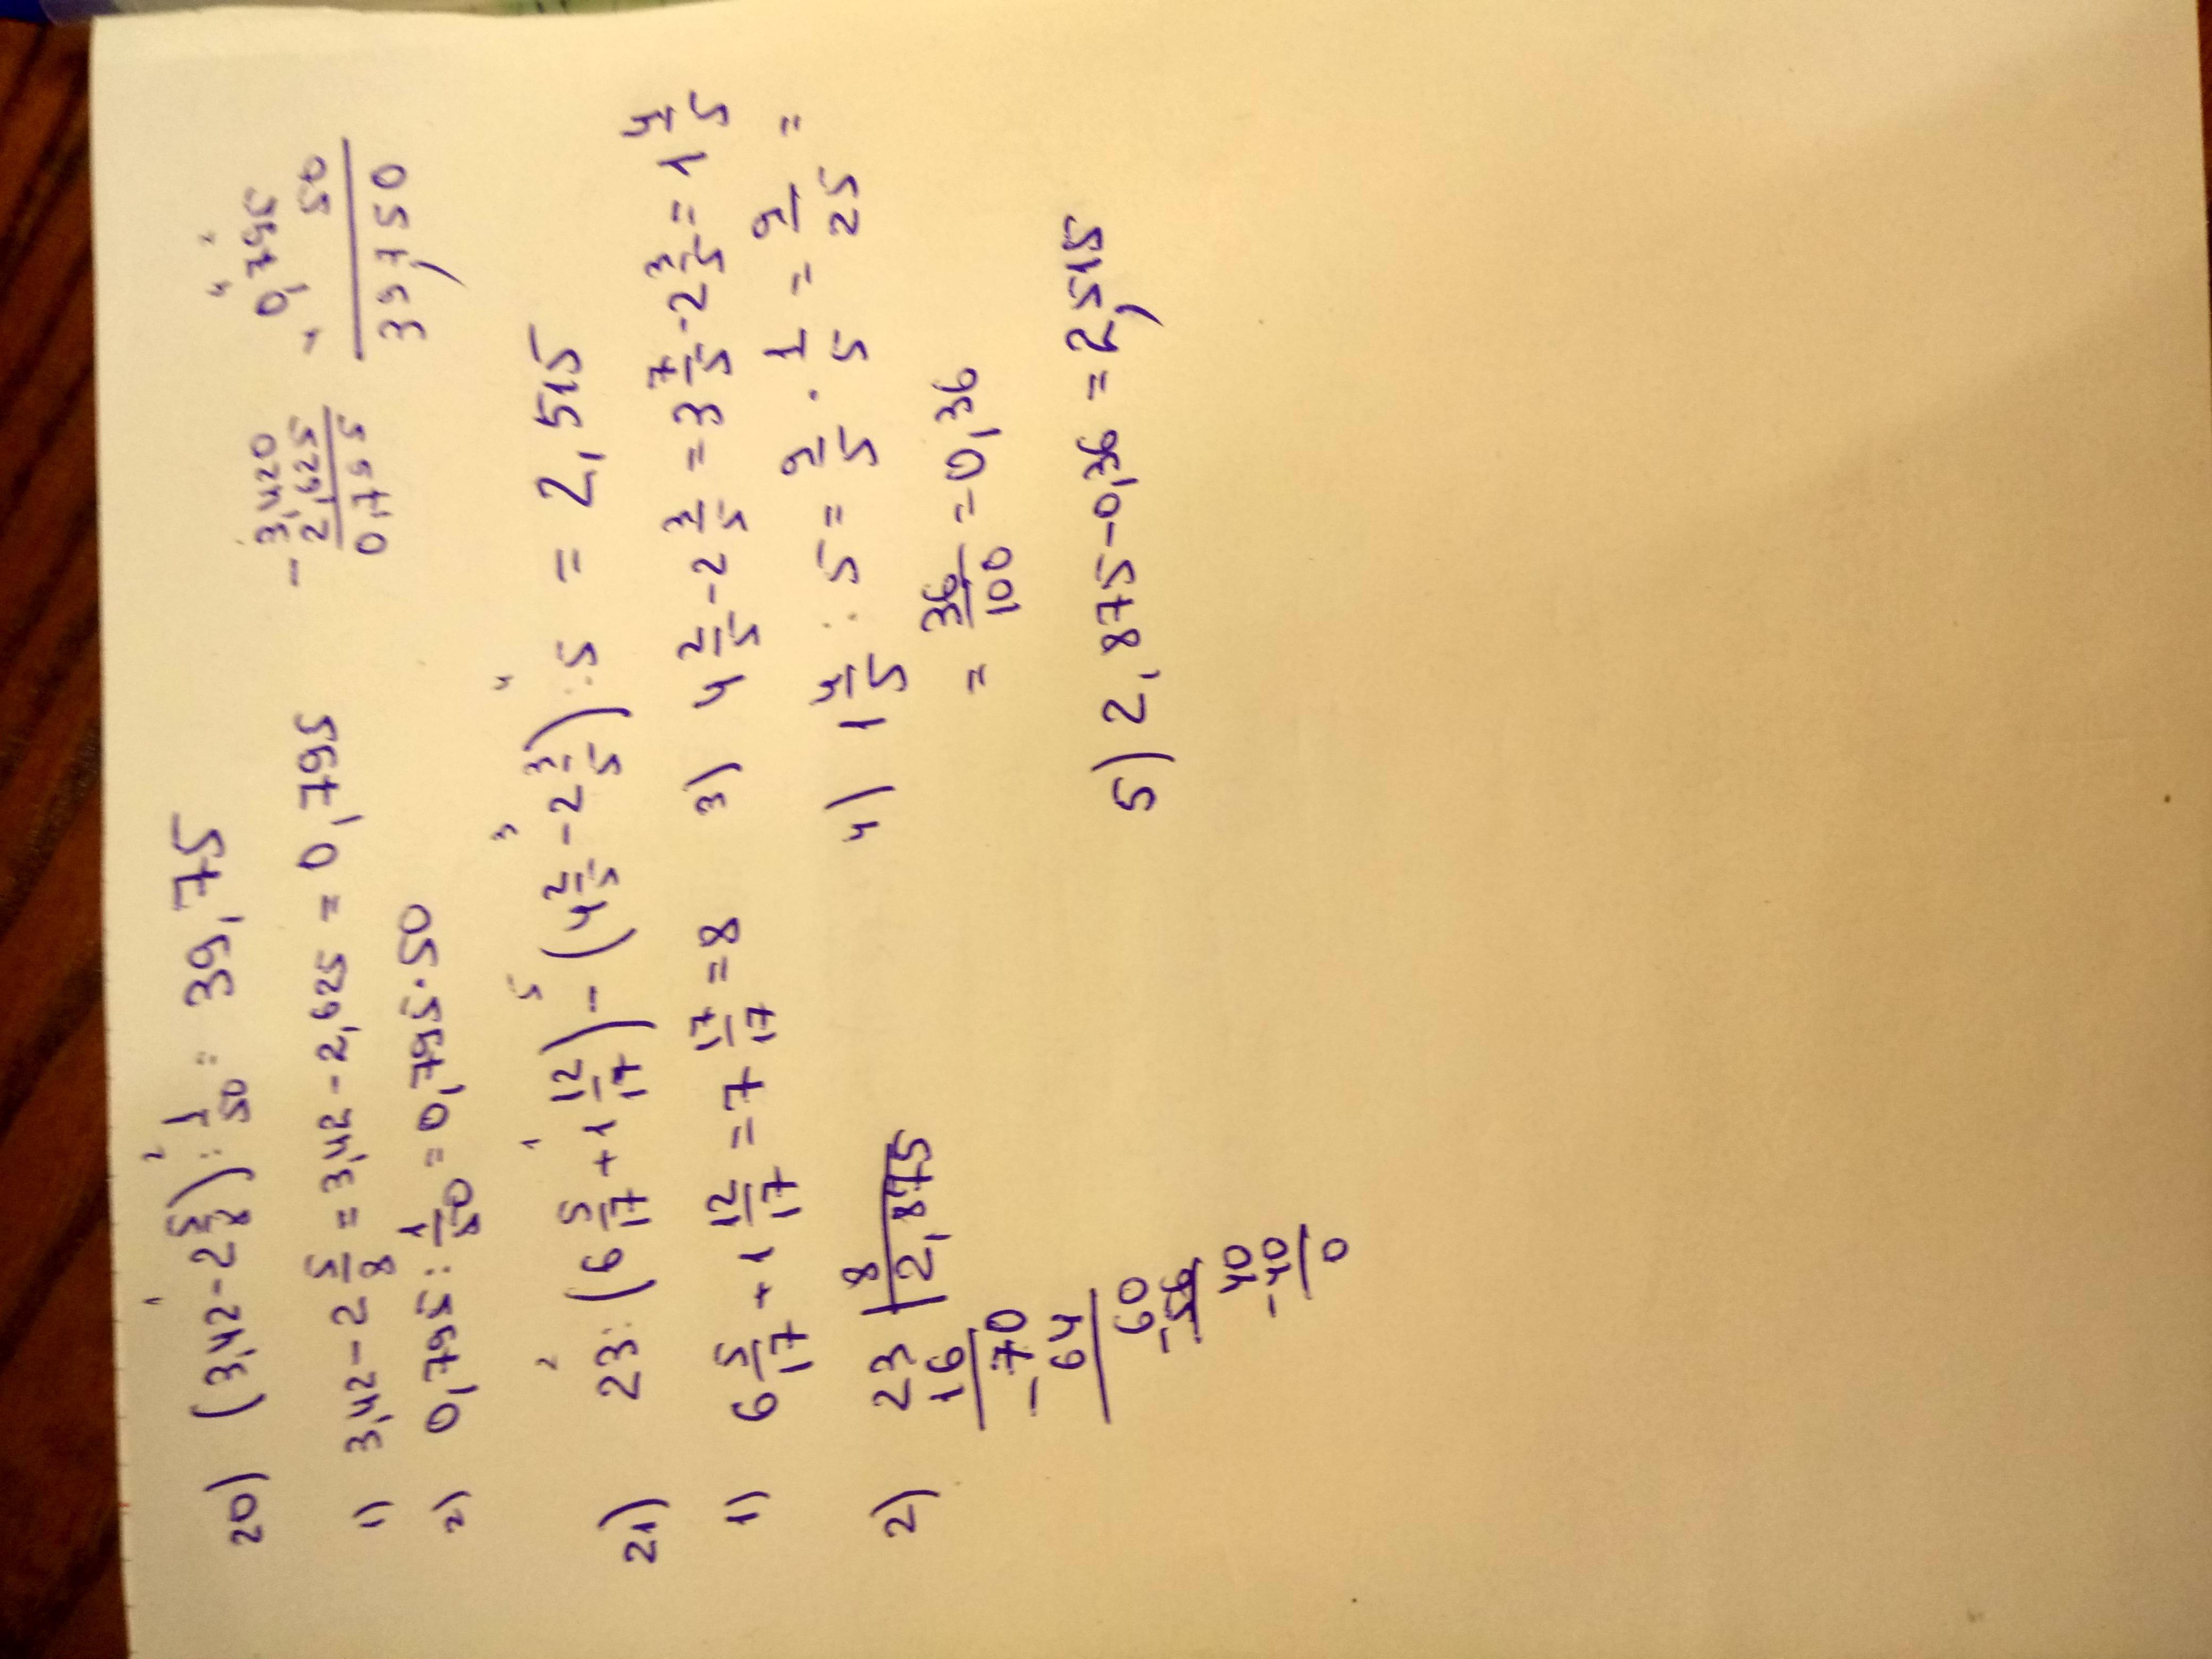 20) (3,42-2 5/8) : 1/50 = 39,75
1) 3,42-2 5/8 = 3,42-2,625 = 0,795
2) 0,795 : 1/50 = 0,795·50
- 3,420
2,625
0,795
0,795
50
39,750
21) 23 : (6 5/17 + 1 12/17) - (4 2/5 - 2 3/5) : 5 = 2,515
1) 6 5/17 + 1 12/17 = 7 17/17 = 8
2) 23 | 8
16 | 2,875
-70
64
-60
56
-40
40
0
3) 4 2/5 - 2 3/5 = 3 7/5 - 2 3/5 = 1 4/5
4) 1 4/5 : 5 = 9/5 · 1/5 = 9/25 =
= 36/100 = 0,36
5) 2,875-0,36 = 2,515